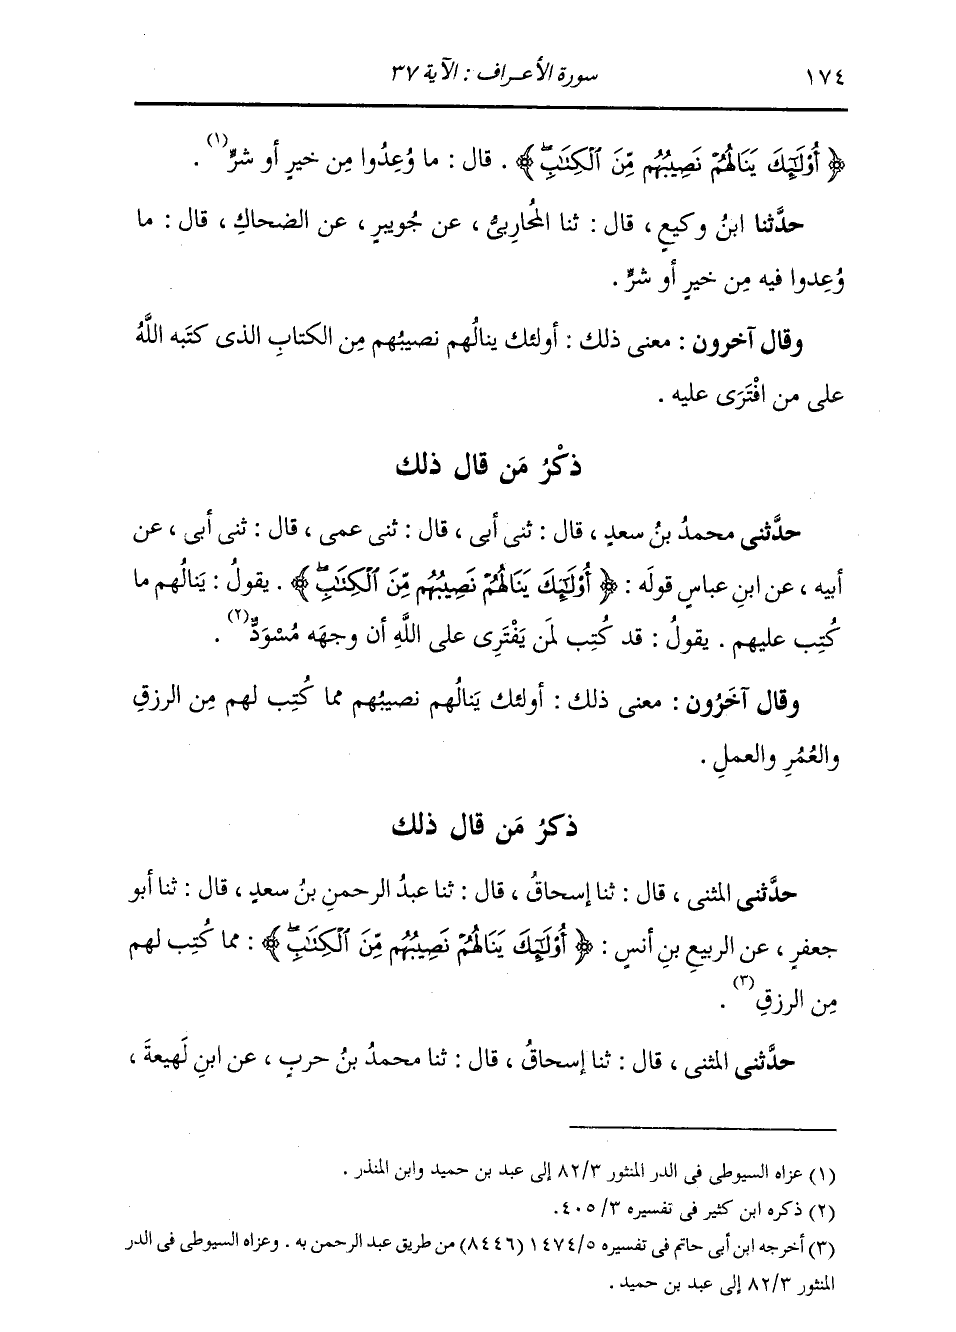 ١٧٤ سورة الأعراف : الآية ٣٧
﴿ أُوْلَٰٓئِكَ يَنَالُهُمْ نَصِيبُهُم مِّنَ ٱلْكِتَٰبِۖ ﴾ . قال : ما وُعِدُوا مِن خيرٍ أو شرٍّ(١) .
حدَّثنا ابنُ وكيعٍ ، قال : ثنا المُحارِبىُّ ، عن جُويبرٍ ، عن الضحاكِ ، قال : ما
وُعِدوا فيه مِن خيرٍ أو شرٍّ .
وقال آخرون : معنى ذلك : أولئك ينالُهم نصيبُهم مِن الكتابِ الذى كتَبه اللَّهُ
على من افْتَرَى عليه .
ذكْرُ مَن قال ذلك
حدَّثنى محمدُ بنُ سعدٍ ، قال : ثنى أبى ، قال : ثنى عمى ، قال : ثنى أبى ، عن
أبيه ، عن ابنِ عباسٍ قولَه : ﴿ أُوْلَٰٓئِكَ يَنَالُهُمْ نَصِيبُهُم مِّنَ ٱلْكِتَٰبِۖ ﴾ . يقولُ : يَنالُهم ما
كُتِب عليهم . يقولُ : قد كُتِب لمَن يَفْتَرِى على اللَّهِ أن وجهَه مُسْوَدٌّ(٢) .
وقال آخَرُون : معنى ذلك : أولئك يَنالُهم نصيبُهم مما كُتِب لهم مِن الرزقِ
والعُمُرِ والعملِ .
ذكرُ مَن قال ذلك
حدَّثنى المثنى ، قال : ثنا إسحاقُ ، قال : ثنا عبدُ الرحمنِ بنُ سعدٍ ، قال : ثنا أبو
جعفرٍ ، عن الربيعِ بنِ أنسٍ : ﴿ أُوْلَٰٓئِكَ يَنَالُهُمْ نَصِيبُهُم مِّنَ ٱلْكِتَٰبِۖ ﴾ : مما كُتِب لهم
مِن الرزقِ(٣) .
حدَّثنى المثنى ، قال : ثنا إسحاقُ ، قال : ثنا محمدُ بنُ حربٍ ، عن ابنِ لَهِيعةَ ،
(١) عزاه السيوطى فى الدر المنثور ٨٢/٣ إلى عبد بن حميد وابن المنذر .
(٢) ذكره ابن كثير فى تفسيره ٤٠٥/٣.
(٣) أخرجه ابن أبى حاتم فى تفسيره ١٤٧٤/٥ (٨٤٤٦) من طريق عبد الرحمن به . وعزاه السيوطى فى الدر
المنثور ٨٢/٣ إلى عبد بن حميد .